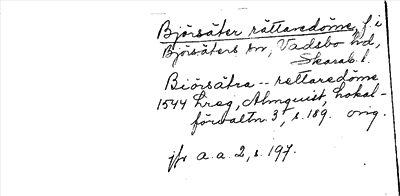 Björsäter rättaredöme, f. i
Björsäters sn, Vadsbo hd,
Skarab. l.
Biörsätra -- rettaredöme
1544 Lreg, Almquist, Lokal-
förvaltn 3, s. 189. orig.
jfr a.a. 2, s. 197.